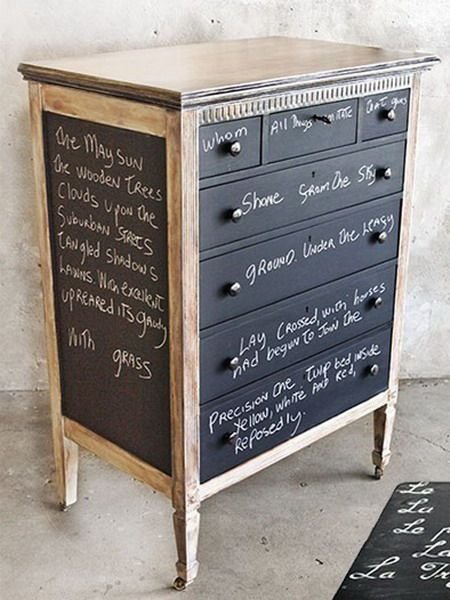 The MAY SUN
the wooden trees
Clouds upon the
Suburban STREETS
tangled shadows
Lawns. With excellent
upreared its gawdy
With GRASS
Whom
All Things imitate
that guys
Shone from the Sky
GROUND. Under the Leafy
LAY Crossed, with horses
HAD begun to Join the
PRECISION the Tulip bed inside
Yellow, white AND Red,
Reposedly.
La
La
Le
La
La Tr